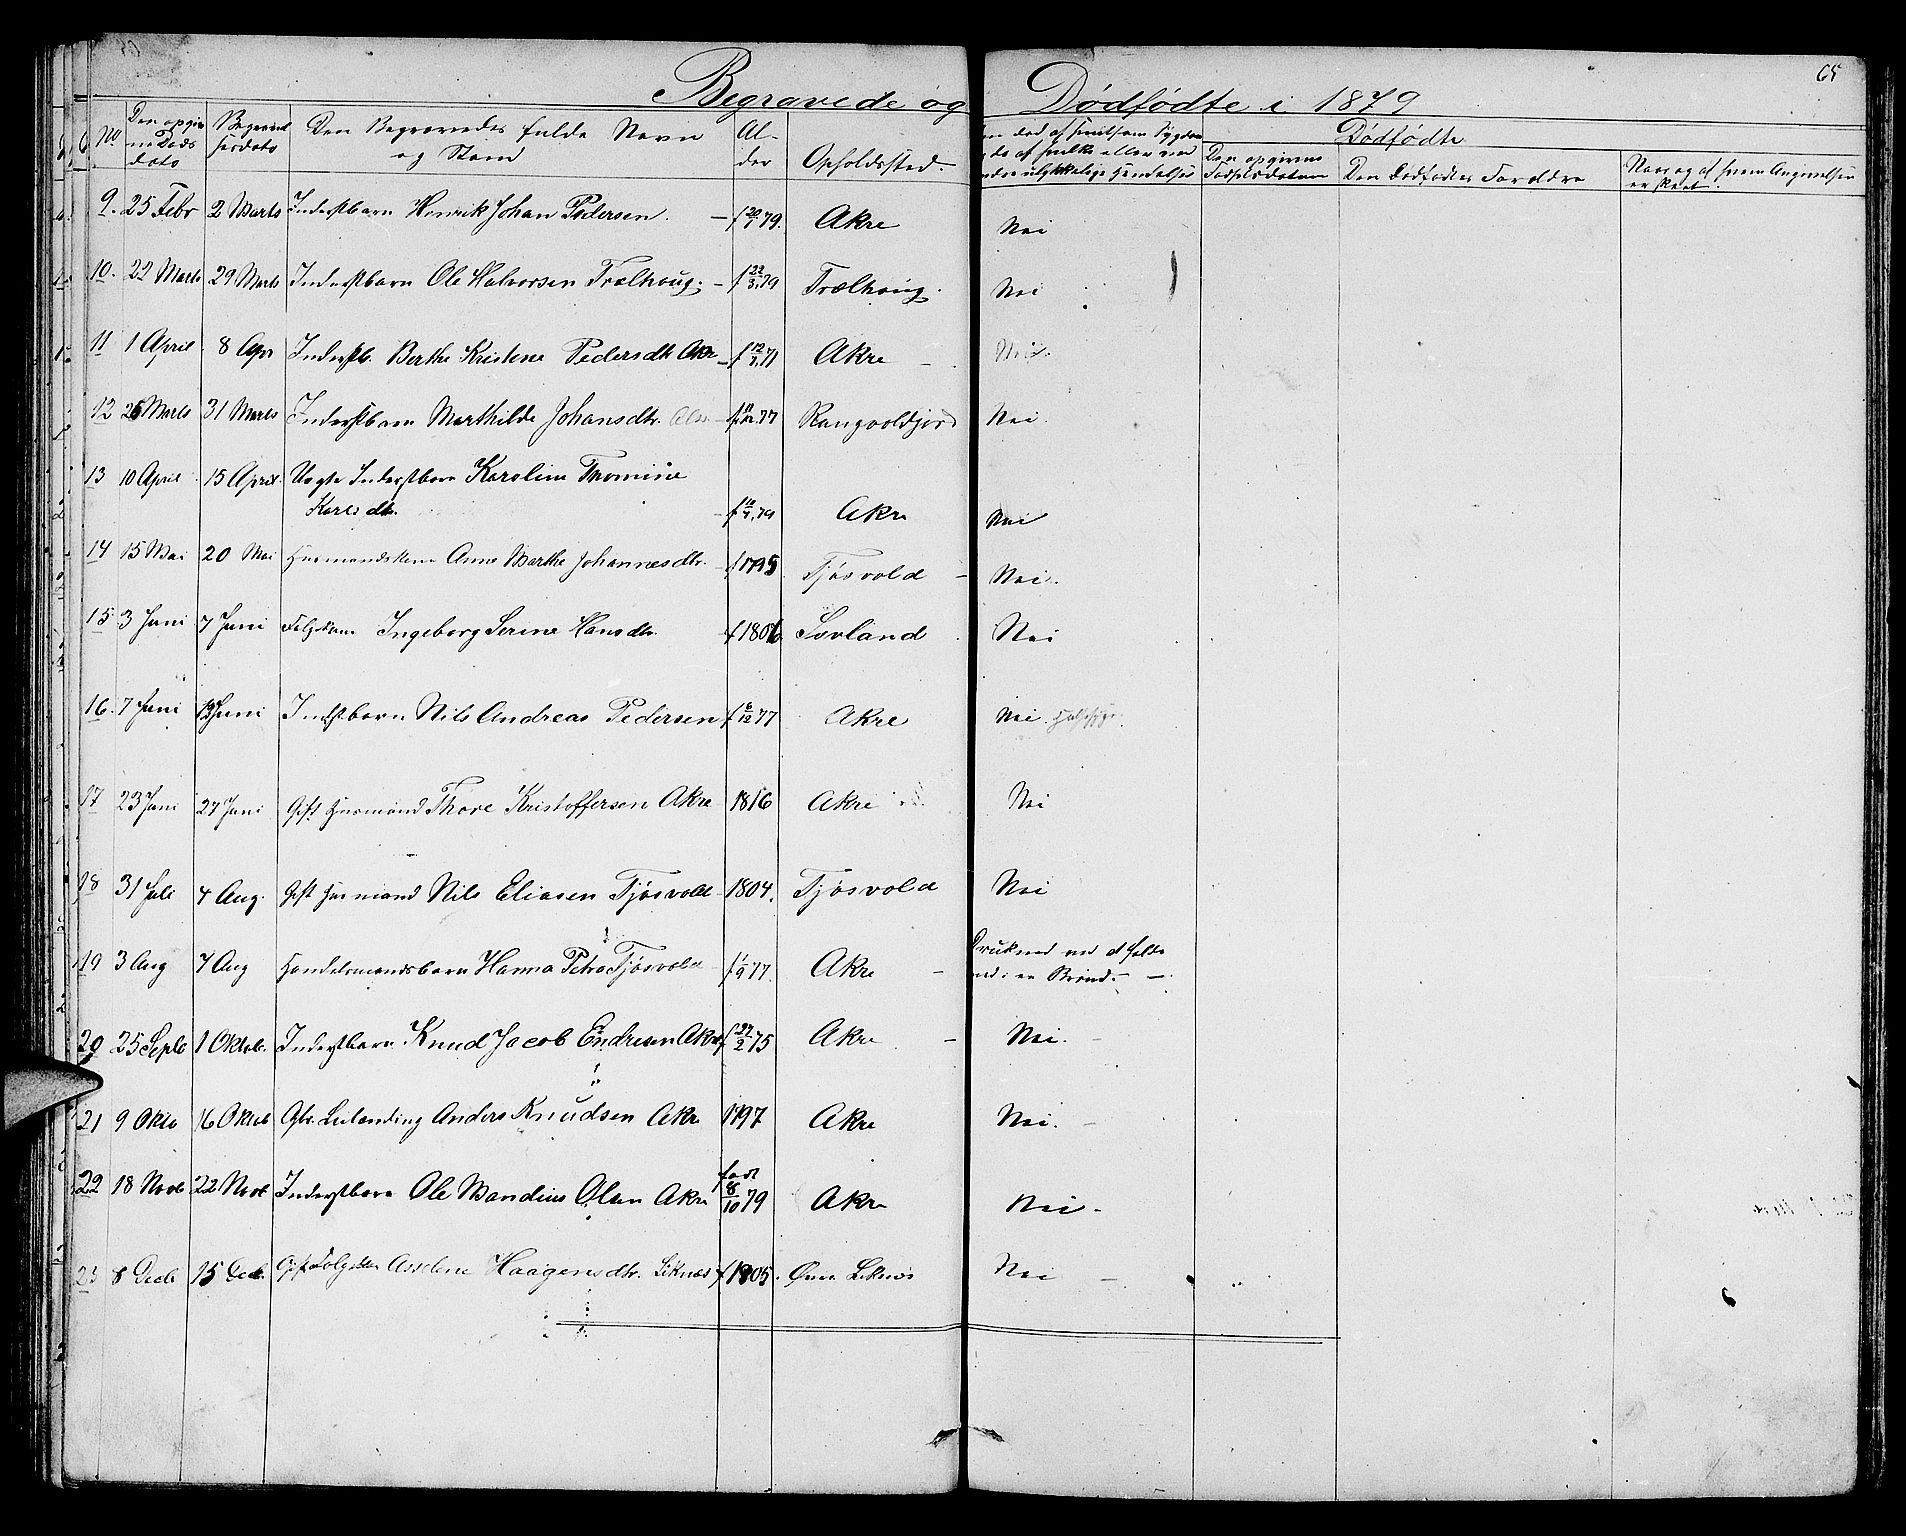 65
Begravede og Dødfødte i 1879
No
Den opgivne Døds dato
Begravelsesdato
Den Begravedes fulde Navn og Stand
Alder
Opholdssted.
Dødfødte
Den opgivne Fødselsdatum
Den Dødfødtes Forældre
9. 25 Febr 2 Marts Inderstbarn Henrik Johan Pedersen. f 20/1 79. Akre Nei
10. 22 Marts 29 Marts Inderstbarn Ole Halvorsen Trælhoug. f 22/3 79 Trælhoug. Nei
11 1 April 8 Apr Inderstb. Berthe Kristene Pedersdtr Akr f 12/7 71 Akre Nei.
12 26 Marts 31 Marts Inderstbarn Marthilde Johansdtr. 77 Rangvoldjord Nei.
13 10 April 15 April Uægte Inderstbarn Karoline Thomine
Karlsdtr. 79 Akre Nei
14 15 Mai 20 Mai Husmandskone Anne Marthe Johannesdtr. f 1795 Tjøsvold Nei.
15 3 Juni 7 Juni Følgekone Ingeborg Serine Hansdtr. f 1806 Søvland Nei
16. 7 Juni 12 Juni Indstbarn Nils Andreas Pedersen f 6/12 77 Akre Nei.
17 23 Juni 27 Juni Gift Husmand Thore Kristoffersen Akre 1816 Akre Nei
18 31 Juli 4 Aug. Gift Husmand Nils Eliasen Tjøsvold 1804. Tjøsvold Nei
19 3 Aug 7 Aug Handelsmandsbarn Hanna Petra Tjøsvold f 1/9 77. Akre Druknede ved at falde
ned i en Brønd.
20 25 Septb 1 Oktob. Inderstbarn Knud Jacob Endresen Akre f 27/2 75 Akre Nei.
21 9 Okto 16 Oktob Leilending Anders Knudsen Akre 1797 Akre Nei.
22 18 Novb 22 Novb Inderstbarn Ole Mandius Olsen Akre født 8/10 79 Akre Nei.
23 8 Decb 15 Decb. Gift Asselene Haagensdtr. Liknes f 1805. Øvre Liknes Nei